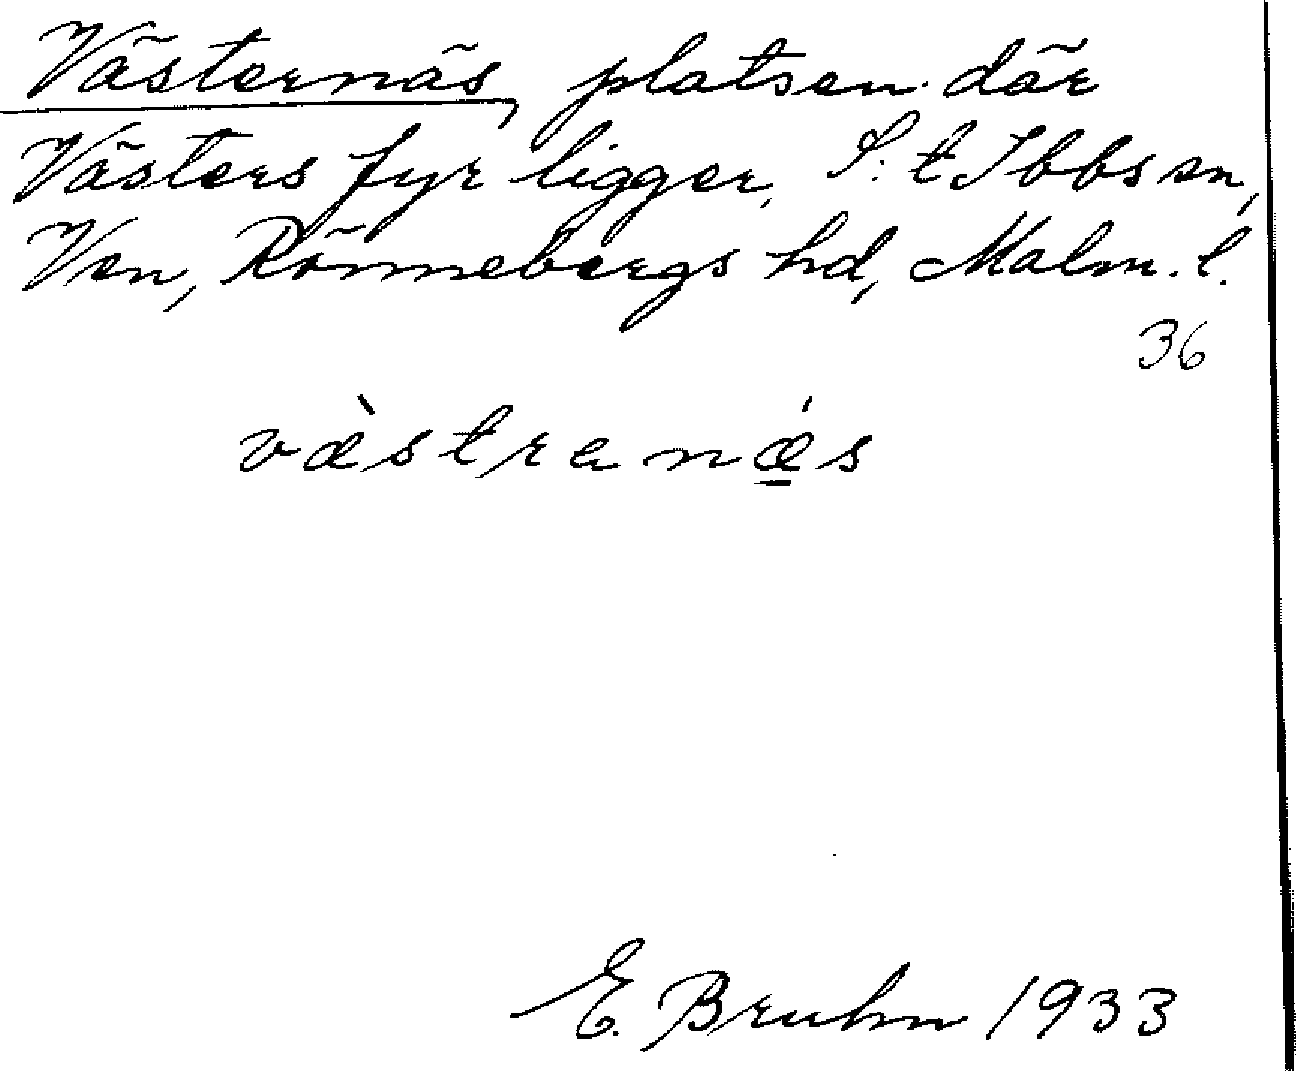 Västernäs, platsen där
Västers fyr ligger, S:t Ibbs sn,
Ven, Rönnebergs hd, Malm. l.
36
væ̀strenǽ̱s
E. Bruhn 1933